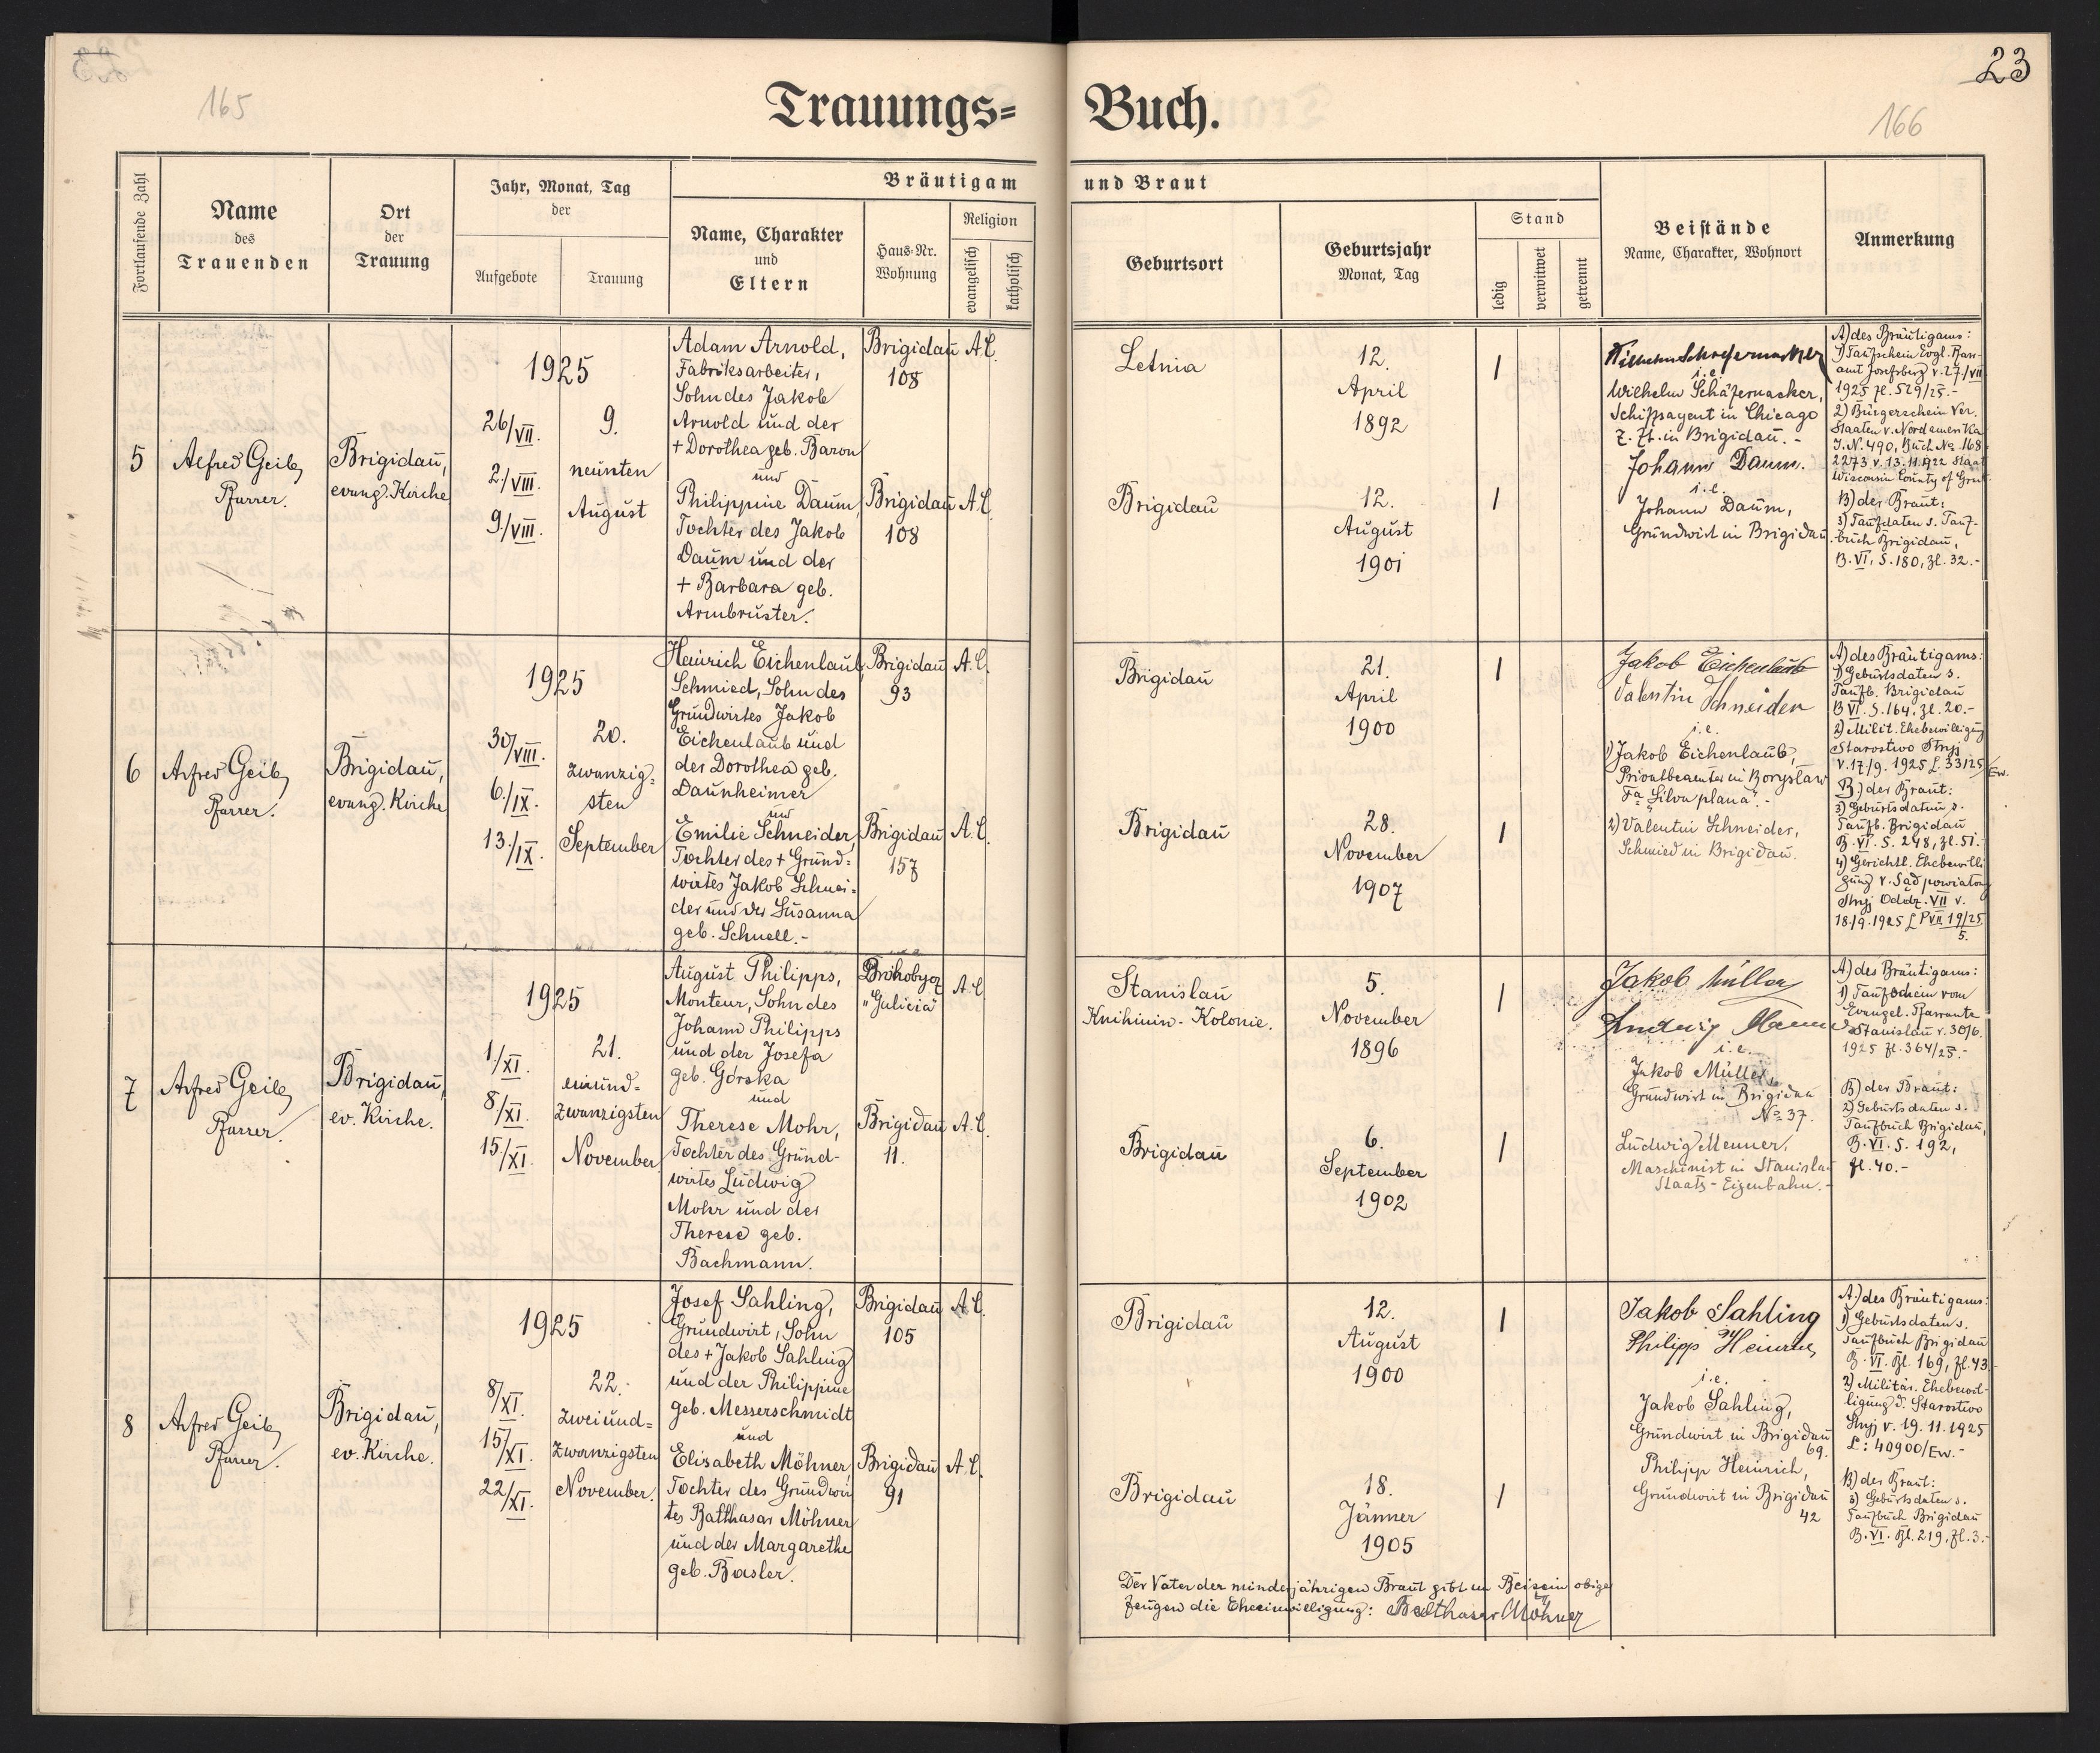 23
165
166
Trauungs= Buch.
Fortlaufende Zahl
Name
des
Trauenden
Ort
der
Trauung
Jahr, Monat, Tag
der
Aufgebote
Trauung
Bräutigam und Braut
Name, Charakter
und
Eltern
Haus-Nr.
Wohnung
Religion
evangelisch
katholisch
Geburtsort
Geburtsjahr
Monat, Tag
Stand
ledig
verwitwet
getrennt
Beistände
Name, Charakter, Wohnort
Anmerkung
5
Alfred Geib,
Pfarrer.
Brigidau,
evang. Kirche
1925
26/VII.
2/VIII.
9/VIII.
9.
neunten
August
Adam Arnold,
Fabriksarbeiter,
Sohn des Jakob
Arnold und der
+ Dorothea geb. Baron
und
Philippine Daum,
Tochter des Jakob
Daum und der
+ Barbara geb.
Armbruster.
Brigidau
108
A.C.
Brigidau
108
A.C.
Letnia
12.
April
1892
1
Brigidau
12.
August
1901
1
Wilhelm Schäfernacker
i.e.
Wilhelm Schäfernacker,
Schiffsagent in Chicago
z. Zt. in Brigidau. -
Johann Daum.
i.e.
Johann Daum,
Grundwirt in Brigidau.
A) des Bräutigams:
1) Taufschein Evgl. Pfarr-
amt Josefsberg v. 27./VII
1925 Zl. 529/25.-
2) Bürgerschein Ver.
Staaten v. Nordamerika
J. N. 490, Buch No 168
2273 v. 13.11.1922 Staat
Wisconsin County of
B) der Braut:
3) Taufdaten s. Tauf-
buch Brigidau,
B. VI, S. 180, Zl. 32.-
6
Alfred Geib,
Pfarrer.
Brigidau,
evang. Kirche
1925
30/VIII.
6./IX.
13./IX.
20.
zwanzig=
sten
September
Heinrich Eichenlaub,
Schmied, Sohn des
Grundwirtes Jakob
Eichenlaub und
der Dorothea geb.
Daunheimer
und
Emilie Schneider,
Tochter des + Grund=
wirtes Jakob Schnei=
der und der Susanna
geb. Schnell.-
Brigidau
93
A.C.
Brigidau
157
A.C.
Brigidau
21.
April
1900
1
Brigidau
28.
November
1907
1
Jakob Eichenlaub
Valentin Schneider
i.e.
1) Jakob Eichenlaub,
Privatbeamter in Boryslaw
Fa „Silva plana". -
2) Valentin Schneider,
Schmied in Brigidau.
A) des Bräutigams:
1) Geburtsdaten s.
Taufb. Brigidau
B VI. S. 164, Zl. 20.-
2) Milit. Ehebewilligung
Starostwo Stryj
v. 17/9. 1925 L. 33125/Ew.
B.) der Braut:
3) Geburtsdaten s.
Taufb. Brigidau
B. VI. S. 248, Zl. 51.-
4) Gerichtl. Ehebewilli
gung v. Sąd powiatowy
Stryj Oddz. VII v.
18/9. 1925 L P VII 19/25
5.
7
Alfred Geib,
Pfarrer.
Brigidau,
ev. Kirche.
1925
1./XI.
8/XI.
15/XI.
21.
einund=
zwanzigsten
November
August Philipps,
Monteur, Sohn des
Johann Philipps
und der Josefa
geb. Górska
und
Therese Mohr,
Tochter des Grund-
wirtes Ludwig
Mohr und der
Therese geb.
Bachmann.
Drohobycz
„Galicia"
A.C.
Brigidau
11.
A.C.
Stanislau
Knihinin - Kolonie.
5.
November
1896
1
Brigidau
6.
September
1902
1
Jakob Müller
Ludwig Menner
i.e.
Jakob Müller,
Grundwirt in Brigidau
No 37.
Ludwig Menner,
Maschinist in Stanislau
Staats-Eisenbahn.-
A) des Bräutigams:
1) Taufschein vom
Evangel. Pfarramte
Stanislau v. 30/6.
1925 Zl. 364/25.-
B) der Braut:
2) Geburtsdaten s.
Taufbuch Brigidau,
B. VI. S. 192,
Zl. 40.-
8
Alfred Geib,
Pfarrer.
Brigidau,
ev. Kirche.
1925
8/XI.
15/XI.
22/XI.
22.
zweiund=
zwanzigsten
November.
Josef Sahling,
Grundwirt, Sohn
des + Jakob Sahling
und der Philippine
geb. Messerschmidt
und
Elisabeth Möhner,
Tochter des Grundwir
tes Balthasar Möhner
und der Margarethe
geb. Basler.
Brigidau
105
A.C.
Brigidau
91
A.C.
Brigidau
12.
August
1900
1
Brigidau
18.
Jänner
1905
1
Jakob Sahling
Philipp Heinrich
i.e.
Jakob Sahling,
Grundwirt in Brigidau
69.
Philipp Heinrich,
Grundwirt in Brigidau
42
A.) des Bräutigams:
1) Geburtsdaten s.
Taufbuch Brigidau
B. VI. Bl. 169, Zl. 43.-
2) Militär. Ehebewil-
ligung d. Starostwo
Stryj v. 19. 11. 1925
L: 40900/Ew.-
B) der Braut:
3) Geburtsdaten s.
Taufbuch Brigidau
B. VI. Bl. 219, Zl. 3.-
Der Vater der minderjährigen Braut gibt im Beisein obiger
Zeugen die Eheeinwilligung: Balthasar Möhner